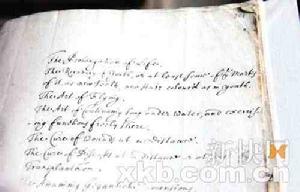 The Prolongation of Life.
The Recovery of Youth, or at least some of the Marks
of it as new Teeth, new Hair colour'd as in youth.
The Art of Flying.
The Art of Continuing long under Water, and exercising
functions freely there.
The Cure of Wounds at a Distance.
The Cure of Diseases at a Distance or at
Transplantation.
The Attaining Gigantick Dimensions.
新快网
www.xkb.com.cn